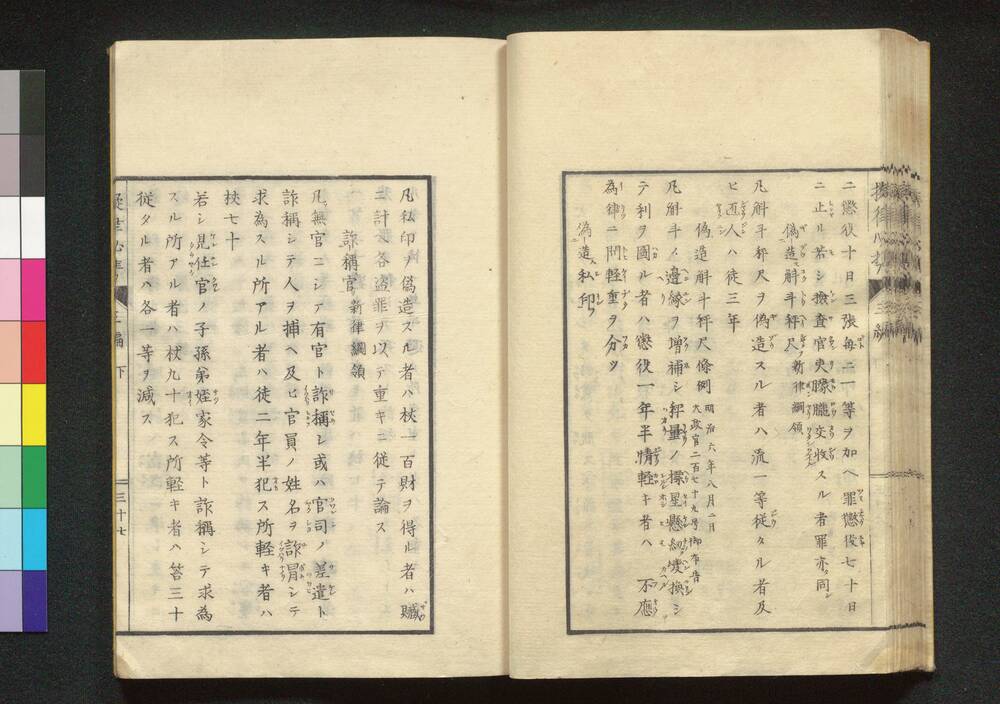 二懲役十日三張毎ニ一等ヲ加ヘ罪懲役七十日
ニ止ル若シ撿査官吏朦朧交收スル者罪亦同シ
偽造斛斗秤尺 新律綱領
凡斛斗秤尺ヲ偽造スル者ハ流一等従タル者及
ヒ匠人ハ徒三年
偽造斛斗秤尺條例 明治六年八月二日
大政官二百七十九号御布告
凡斛斗ノ邊縁ヲ増補シ秤量ノ換シ
テ利ヲ圖ル者ハ懲役一年半情軽キ者ハ不應
為律ニ問軽重ヲ分ツ
偽造私印
凡私印ヲ偽造スル者ハ杖一百財ヲ得ル者ハ贓
ニ計ヘ各盗罪ヲ以テ重キニ従テ論ス
詐稱官 新律綱領
凡無官ニシテ有官ト詐稱シ或ハ官司ノ差遣ト
詐稱シテ人ヲ捕ヘ及ヒ官員ノ姓名ヲ詐冒シテ
求為スル所アル者ハ徒二年半犯ス所軽キ者ハ
杖七十
若シ見仕官ノ子孫弟姪家令等ト詐稱シテ求為
スル所アル者ハ杖九十犯ス所軽キ者ハ笞三十
従タル者ハ各一等ヲ減ス
三編 下 三十七